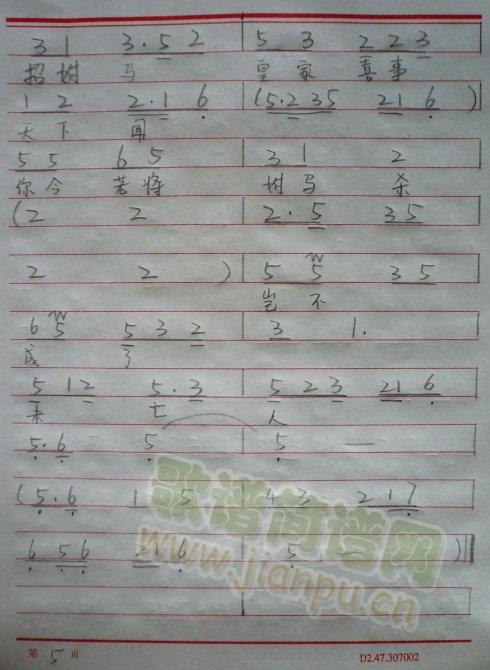 3 1 3·5 2 | 5 3 2 2 3
招树 马 皇家 喜事
1 2 2·1 6 | (5·2 3 5 2 1 6 )
天下 闻
5 5 6 5 | 3 1 2
你今 若将 树马 杀
(2 2 | 2·5 3 5
2 2 ) | 5 5 3 5
岂不
6 5 5 3 2 | 3 1.
成 了
5 1 2 5·3 | 5 2 3 2 1 6
未亡 人
5·6 5 | 5 —
(5·6 1 5 | 4 3 2 1 7
6 5 6 2 1 6 | 5 — )
歌谱简谱网
www.jianpu.cn
第 5 页 D2.47.307002